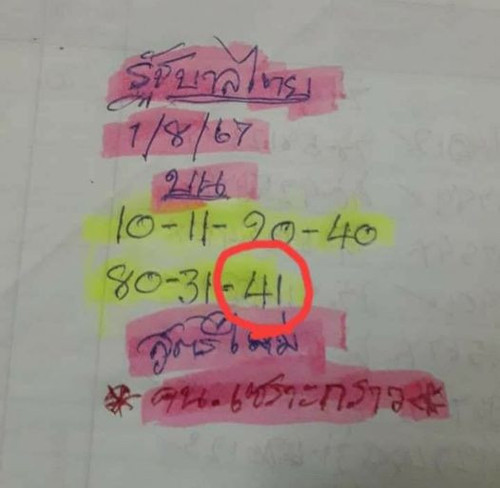 รัฐบาลไทย
1/8/67
บน
10-11-90-40
80-31-41
สูตรใหม่
* คน.เซราะกราว *